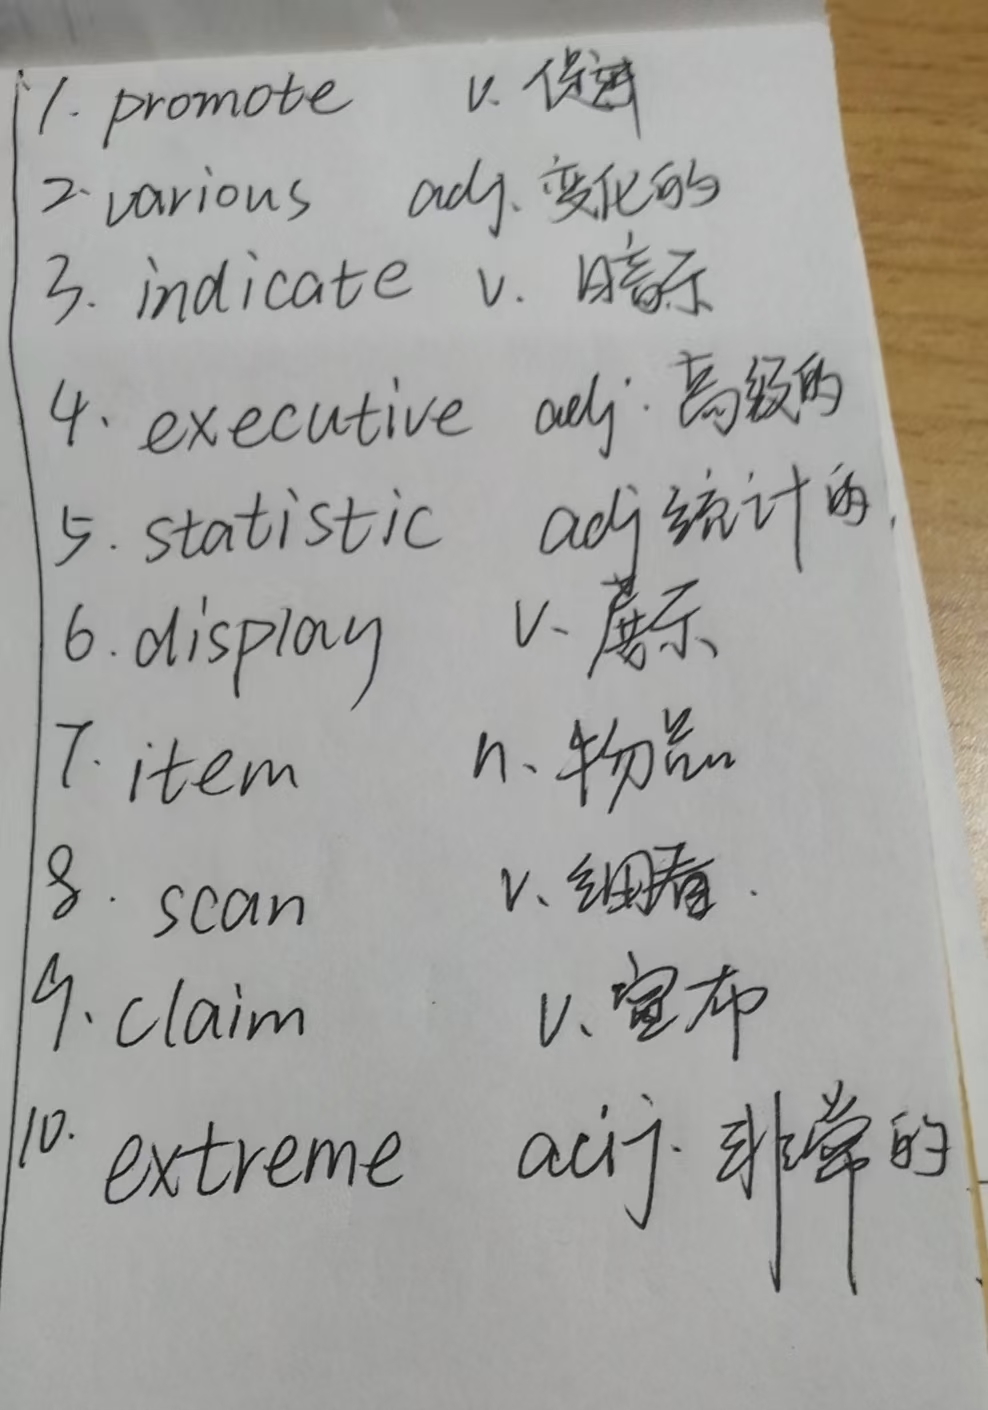 1. promote v. 促进
2. various adj. 变化的
3. indicate v. 暗示
4. executive adj. 高级的
5. statistic adj 统计的
6. display v. 展示
7. item n. 物品
8. scan v. 细看.
9. claim v. 宣布
10. extreme adj. 非常的